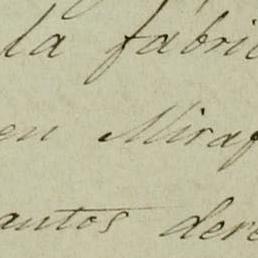 la fabric
en Miraf
antos dere